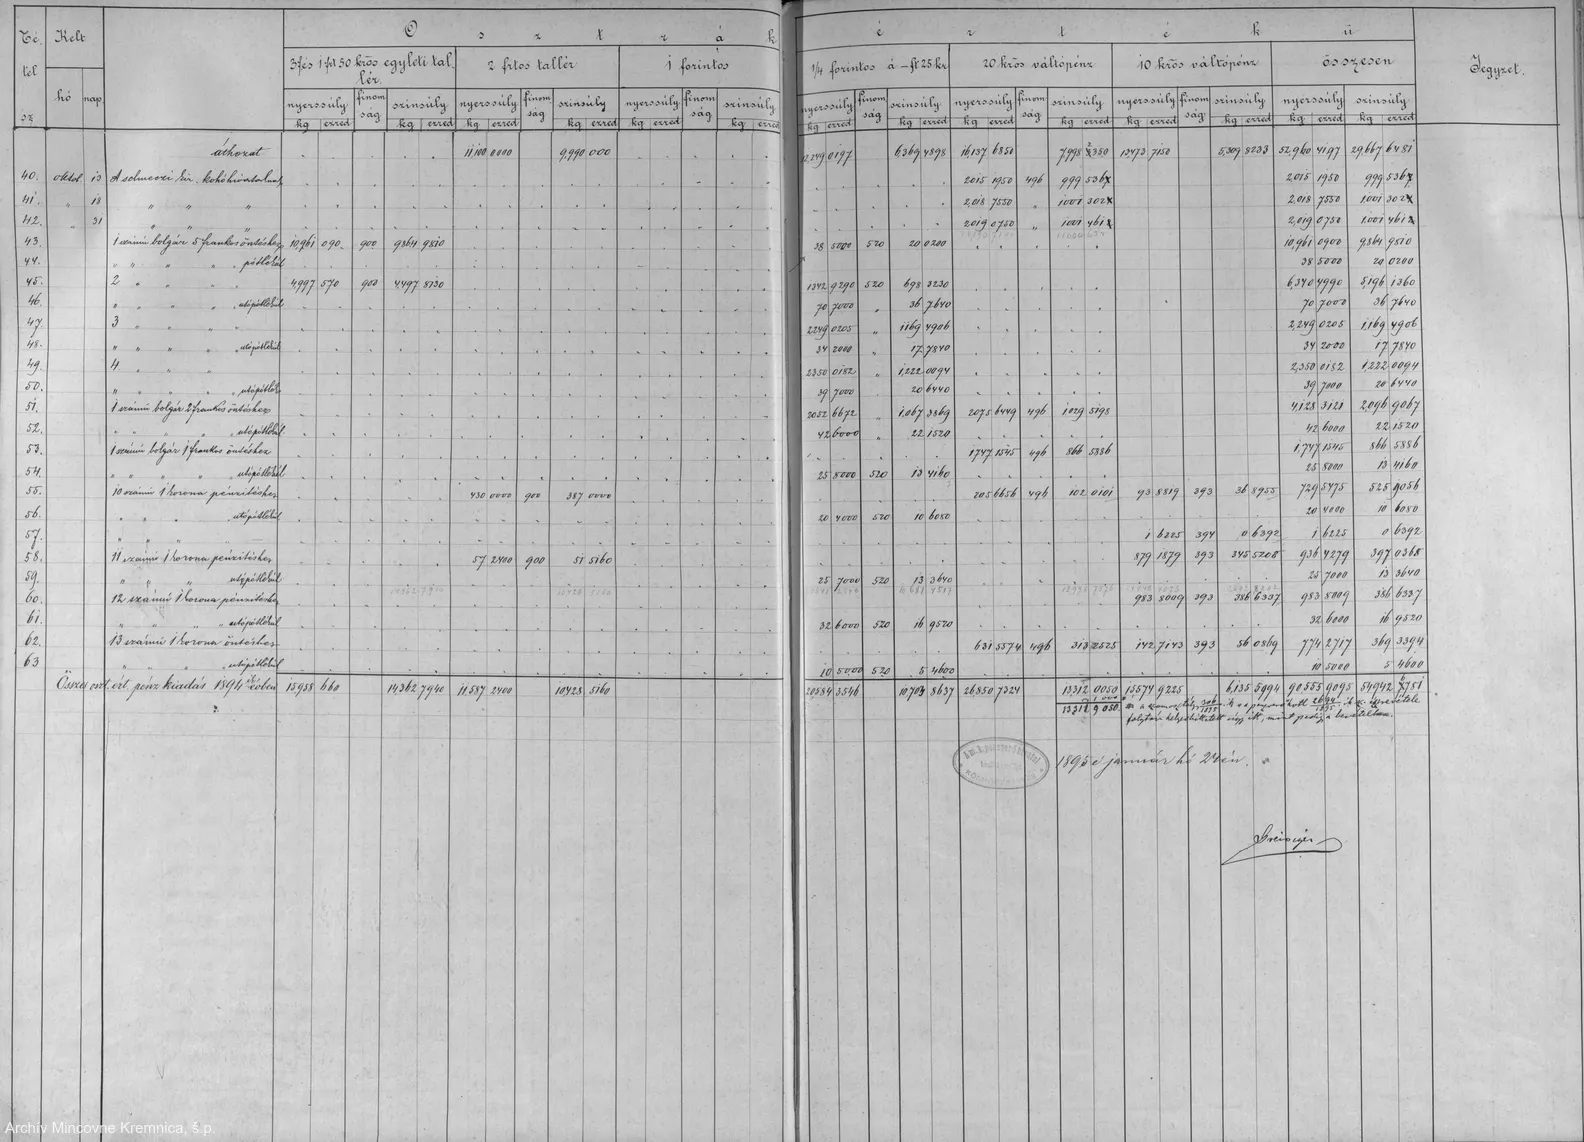 O s z t r á k é r t é k ű
Tétel sz Kelt hó nap
3 fts 1 frt 50 krős egyleti tallér. 2 frtos tallér 1 forintos 1/4 forintos á – ft 25 kr 20 krős váltópénz 10 krős váltópénz összesen Jegyzet.
nyerssúly finomság szinsúly nyerssúly finomság szinsúly nyerssúly finomság szinsúly nyerssúly finomság szinsúly nyerssúly finomság szinsúly nyerssúly finomság szinsúly nyerssúly szinsúly
kg ezred kg ezred kg ezred kg ezred kg ezred kg ezred kg ezred kg ezred kg ezred kg ezred kg ezred kg ezred kg ezred kg ezred
áthozat 11,100 0000 9,990 000 12,249 0197 6,369 4898 16,137 6850 7998 350 13473 7150 5,309 8233 52,960 4197 29,667 6481
40. oktob 13 A selmeczi kir. kohóhivatalnak 2015 1950 496 999 536 2,015 1950 999 536
41. " 18 " " " 2,018 7550 " 1001 302 2,018 7550 1001 302
42. " 31 " " " 2,019 0750 " 1001 461 2,019 0750 1001 461
43. 1 számú bolgár 5 frankos öntéshez 10,961 090 900 9864 9810 10,961 0900 9,864 9810
44. " " " " pótlékúl 38 5000 520 20 0200 38 5000 20 0200
45. 2 " " " 4,997 570 900 4497 8130 1342 9290 520 698 3230 6,340 4990 5,196 1360
46. " " " " utópótlékúl 70 7000 " 36 7640 70 7000 36 7640
47. 3 " " " 2,249 0205 " 1,169 4906 2,249 0205 1,169 4906
48. " " " " utópótlékúl 34 2000 " 17 7840 34 2000 17 7840
49. 4 " " " 2350 0182 " 1,222 0094 2,350 0182 1,222 0094
50. " " " " utópótlék 39 7000 " 20 6440 39 7000 20 6440
51. 1 számú bolgár 2 frankos öntéshez 2052 6672 " 1,067 3869 2075 6449 496 1029 5198 4,128 3121 2,096 9067
52. " " " " utópótlékúl 42 6000 " 22 1520 42 6000 22 1520
53. 1 számú bolgár 1 frankos öntéshez 1747 1545 496 866 5886 1,747 1545 866 5886
54. " " " " utópótlékúl 25 8000 520 13 4160 25 8000 13 4160
55. 10 számú 1 korona pénzítéshez 430 0000 900 387 0000 205 6656 496 102 0101 93 8819 393 36 8955 729 5475 525 9056
56. " " " utópótlékúl 20 4000 520 10 6080 20 4000 10 6080
57. " " " 1 6225 394 0 6392 1 6225 0 6392
58. 11 számú 1 korona pénzítéshez 57 2400 900 51 5160 879 1879 393 345 5208 936 4279 397 0368
59. " " " utópótlékúl 25 7000 520 13 3640 25 7000 13 3640
60. 12 számú 1 korona pénzítéshez 983 8009 393 386 6337 983 8009 386 6337
61. " " " utópótlékúl 32 6000 520 16 9520 32 6000 16 9520
62. 13 számú 1 korona öntéshez 631 5574 496 313 2525 142 7143 393 56 0869 774 2717 369 3394
63 " " " utópótlékúl 10 5000 520 5 4600 10 5000 5 4600
Összes oszt. ért. pénz kiadás 1894 évben 15958 660 14,362 7940 11,587 2400 10428 5160 20584 3546 10703 8637 26850 7324 13,312 0050 15574 9225 6,135 5994 90,555 9095 54942 781
13,312 9 050
folytán helyesbíttetett úgy itt, mint pedig a bevételben.
1895 é január hó 24én.
Archív Mincovne Kremnica, š.p.